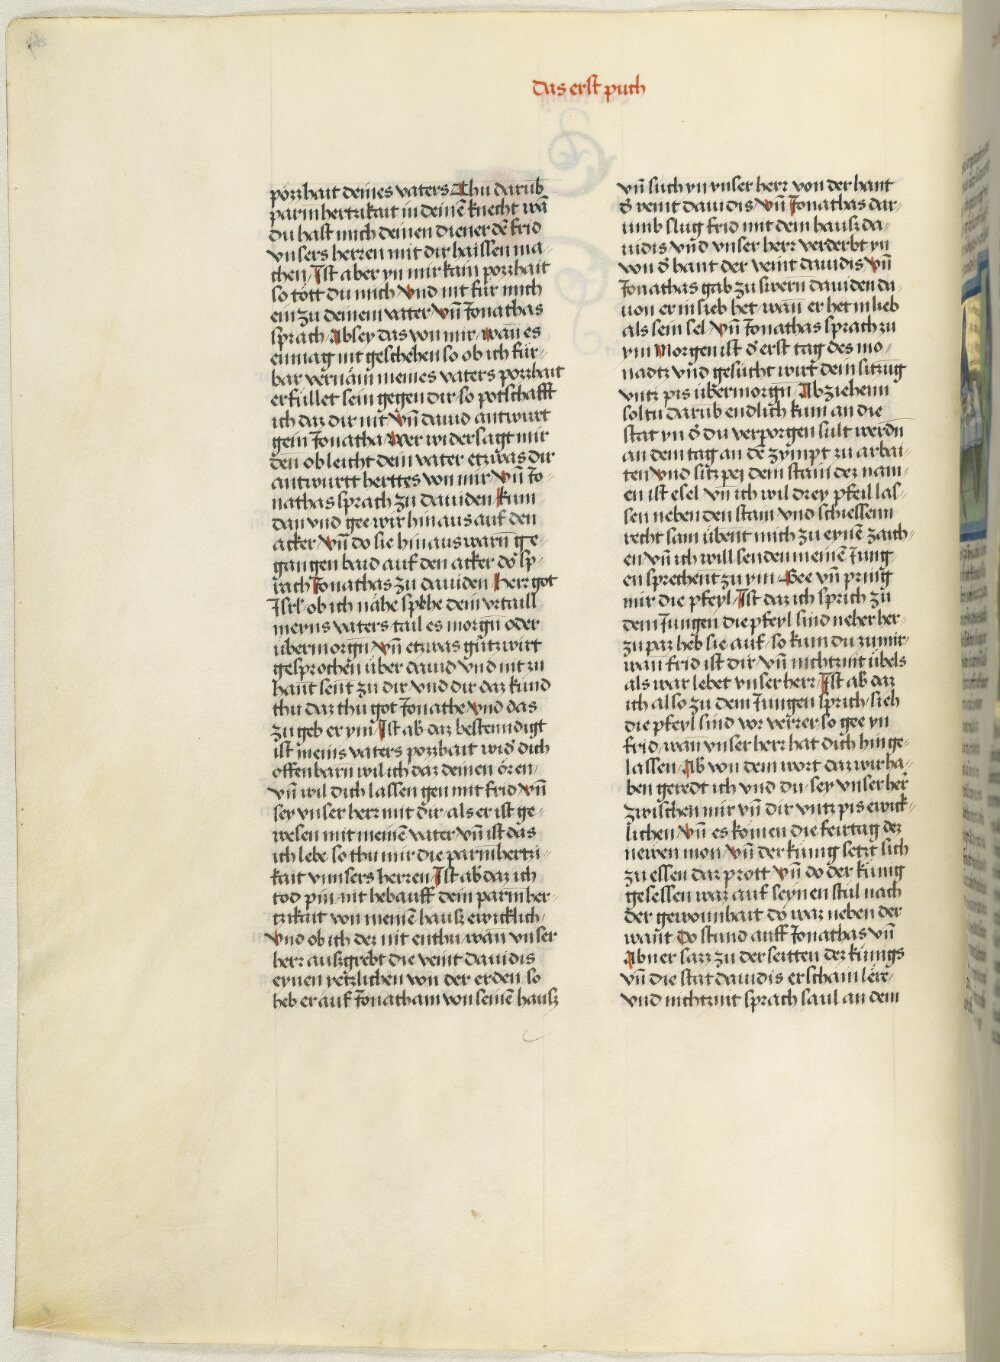 das erst puch
pozzhait deines vaters Thu darub̄
parmhertzikait in deinē knecht wā
du hast mich deinen diener dē frid
vnsers herren mit dir haissen ma-
chen Ist aber yn mir kain pozzhait
so tött du mich vnd nit für mich
ein zu deinem vater vn̄ Jonathas
sprach Ab sey das von mir wan̄ es
en mag nit geschehen so ob ich für-
bar vernäm meines vaters pozzhait
erfüllet sein gegen dir so potschafft
ich daz dir nit vn̄ dauid antwurt
gein Jonatha wer widersagt mir
den ob leicht dein vater etzwas dir
antwurtt herttes von mir vn̄ Jo-
nathas sprach zu dauiden kum
dan vnd gee wir hinaus auf den
acker vn̄ do sie hinaus warn̄ ge-
gangen baid auf den acker do sp-
rach Jonathas zu dauiden Herr got
Isrl' ob ich nähe spehe dein vrtaill
meyns vaters tail es morgn̄ oder
übermorgn̄ vn̄ etzwas gutz wirt
gesprochen über dauid vnd nit zu
hant sent zu dir vnd dir daz kund
thu daz thu got Jonathe vnd das
zu geb er ym Ist ab daz bestenndigt
ist meins vaters pozzhait wid' dich
offenbarn wil ich daz deinen oren
vn̄ wil dich lassen gen mit frid vn̄
sey vnser herr mit dir als er ist ge-
wesen mit meinē vater vn̄ ist das
ich lebe so thu mir die parmhertzi-
kait vnnsers herren Ist ab daz ich
tod pin nit hebauff dein parmher-
tzikait von meinē hausz ewicklich
vnd ob ich dez nit enthu wan vnser
herr auszgrebt die veint dauidis
eynen yetzlichen von der erden so
heb er auf Jonatham von seinē hausz
vn̄ such yn vnser herr von der hant
d' veint dauidis vn̄ Jonathas dar-
umb slug frid mit dem hausz da-
uidis vnd vnser herr verderbt yn
von d' hant der veint dauidis vn̄
Jonathas gab zu swern dauiden da-
uon er in lieb het wan̄ er het in lieb
als sein sel vn̄ Jonathas sprach zu
ym Morgen ist d' erst tag des mo-
nadtz vnd gesucht wirt dein sitzug
vntz pis übermorgn̄ Abziehenn
soltu darub endlich kum an die
stat yn d' du verporgen sult werdn̄
an dem tag an dē zympt zu arbai-
ten vnd sitz pey dem stain dez nam-
en ist esel vn̄ ich wil drey pfeil las-
sen neben den stain vnd schiessenn
recht sam übent mich zu eynē zaich-
en vn̄ ich will senden meinen Jung-
en sprechent zu ym Gee vn̄ pring
mir die pfeyl Ist daz ich sprich zu
dem Jungen die pfeyl sind neher her-
zu paz heb sie auf so kum du zu mir
wan̄ frid ist dir vn̄ nichtznit übels
als war lebet vnser herr Ist ab daz
ich also zu dem Jungen sprich sich
die pfeyl sind vor verrer so gee yn
frid wan vnser herr hat dich hin ge-
lassen Ab von dem wort daz wir ha-
ben geredt ich vnd du sey vnser her
zwischen mir vn̄ dir vntz pis ewick-
lichen vn̄ es komen die feirtag dez
newen mon vn̄ der kunig setzt sich
zu essen daz prott vn̄ do der kunig
gesessen waz auf seynen stul nach
der gewonnhait do waz neben der
want Do stund auff Jonathas vn̄
Abner sazz zu der seitten dez kunigs
vn̄ die stat dauidis erscham lere
vnd nichtznit sprach saul an dem